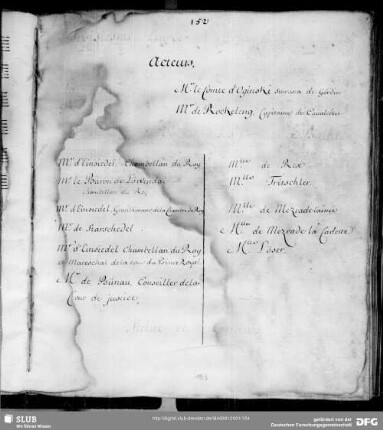 152
Acteurs.
Mr. le Comte d'Oginski
Mr. de Rockeleng, Capitaine de Cavallerie
Mr. d'Einsiedel, Chambellan du Roy
Mr. le Baron de Löwendal
Chambellan du Roy
Mr. d'Einsiedel, du Roy
Mr. de Karschedel
Mr. d'Einsiedel Chambellan du Roy
et Mareschal de la cour du Prince Royal
Mr. de Bünau, Conseiller de la
Cour de justice,
Mlle de Rex
Mlle Tritschler.
Mlle de Mezrade l'ainée
Mlle de Mezrade la Cadette
Mlle Löser.
SLUB
Wir führen Wissen.
gefördert von der
Deutschen Forschungsgemeinschaft
DFG